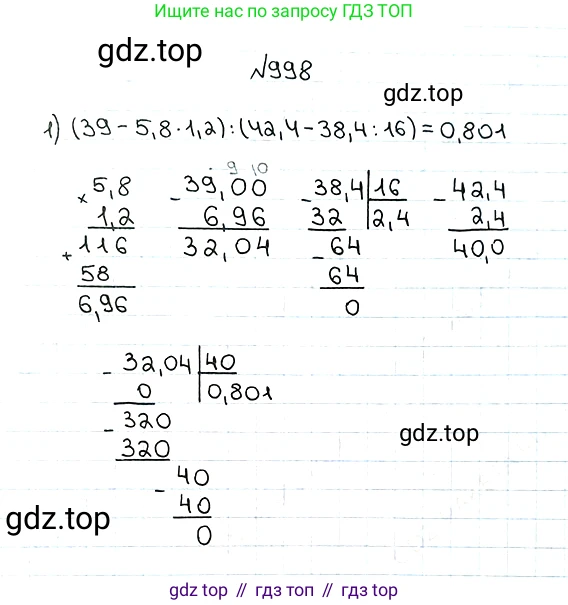 Ищите нас по запросу ГДЗ ТОП
gdz.top
№998
gdz.top
1) (39 - 5,8 · 1,2) : (42,4 - 38,4 : 16) = 0,801
9 10
× 5,8 - 39,00 - 38,4 | 16 - 42,4
1,2 6,96 32 2,4 2,4
+ 116 32,04 - 64 40,0
58 64
6,96 0
- 32,04 | 40
0 0,801
- 320
320 gdz.top
- 40
40
gdz.top 0
gdz top // гдз топ // gdz top